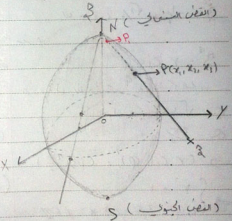 N (القطب الشمالي)
P
P(x₁, x₁, x₁)
Y
X
S (القطب الجنوبي)